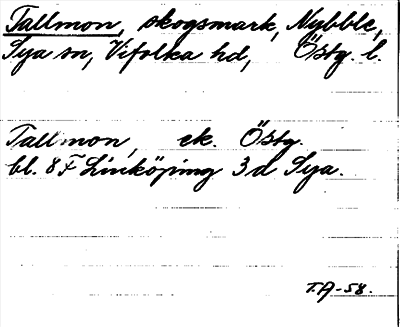 Tallmon, skogsmark, Nybble,
Sya sn, Vifolka hd, Östg. l.
Tallmon, ek. Östg.
bl. 8 F Linköping 3 d Sya.
T.A-58.